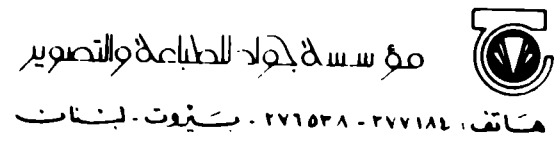 مؤسسة جواد للطباعة والتصوير
هاتف: ٢٧٧١٨٤ - ٢٧٦٥٣٨ . بيروت . لبنان